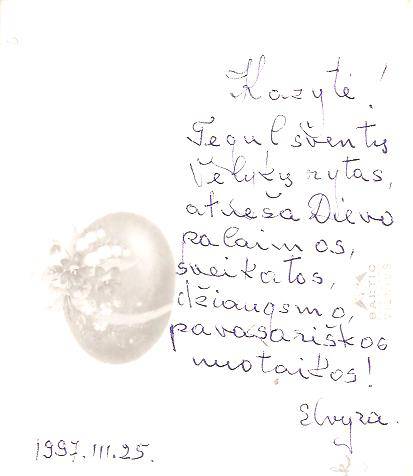 Kazyte!
Tegul šventų
Velykų rytas,
atneša Dievo
palaimos,
sveikatos,
džiaugsmo,
pavasariškos
nuotaikos!
Elvyra.
1997.III.25.
BALTIC